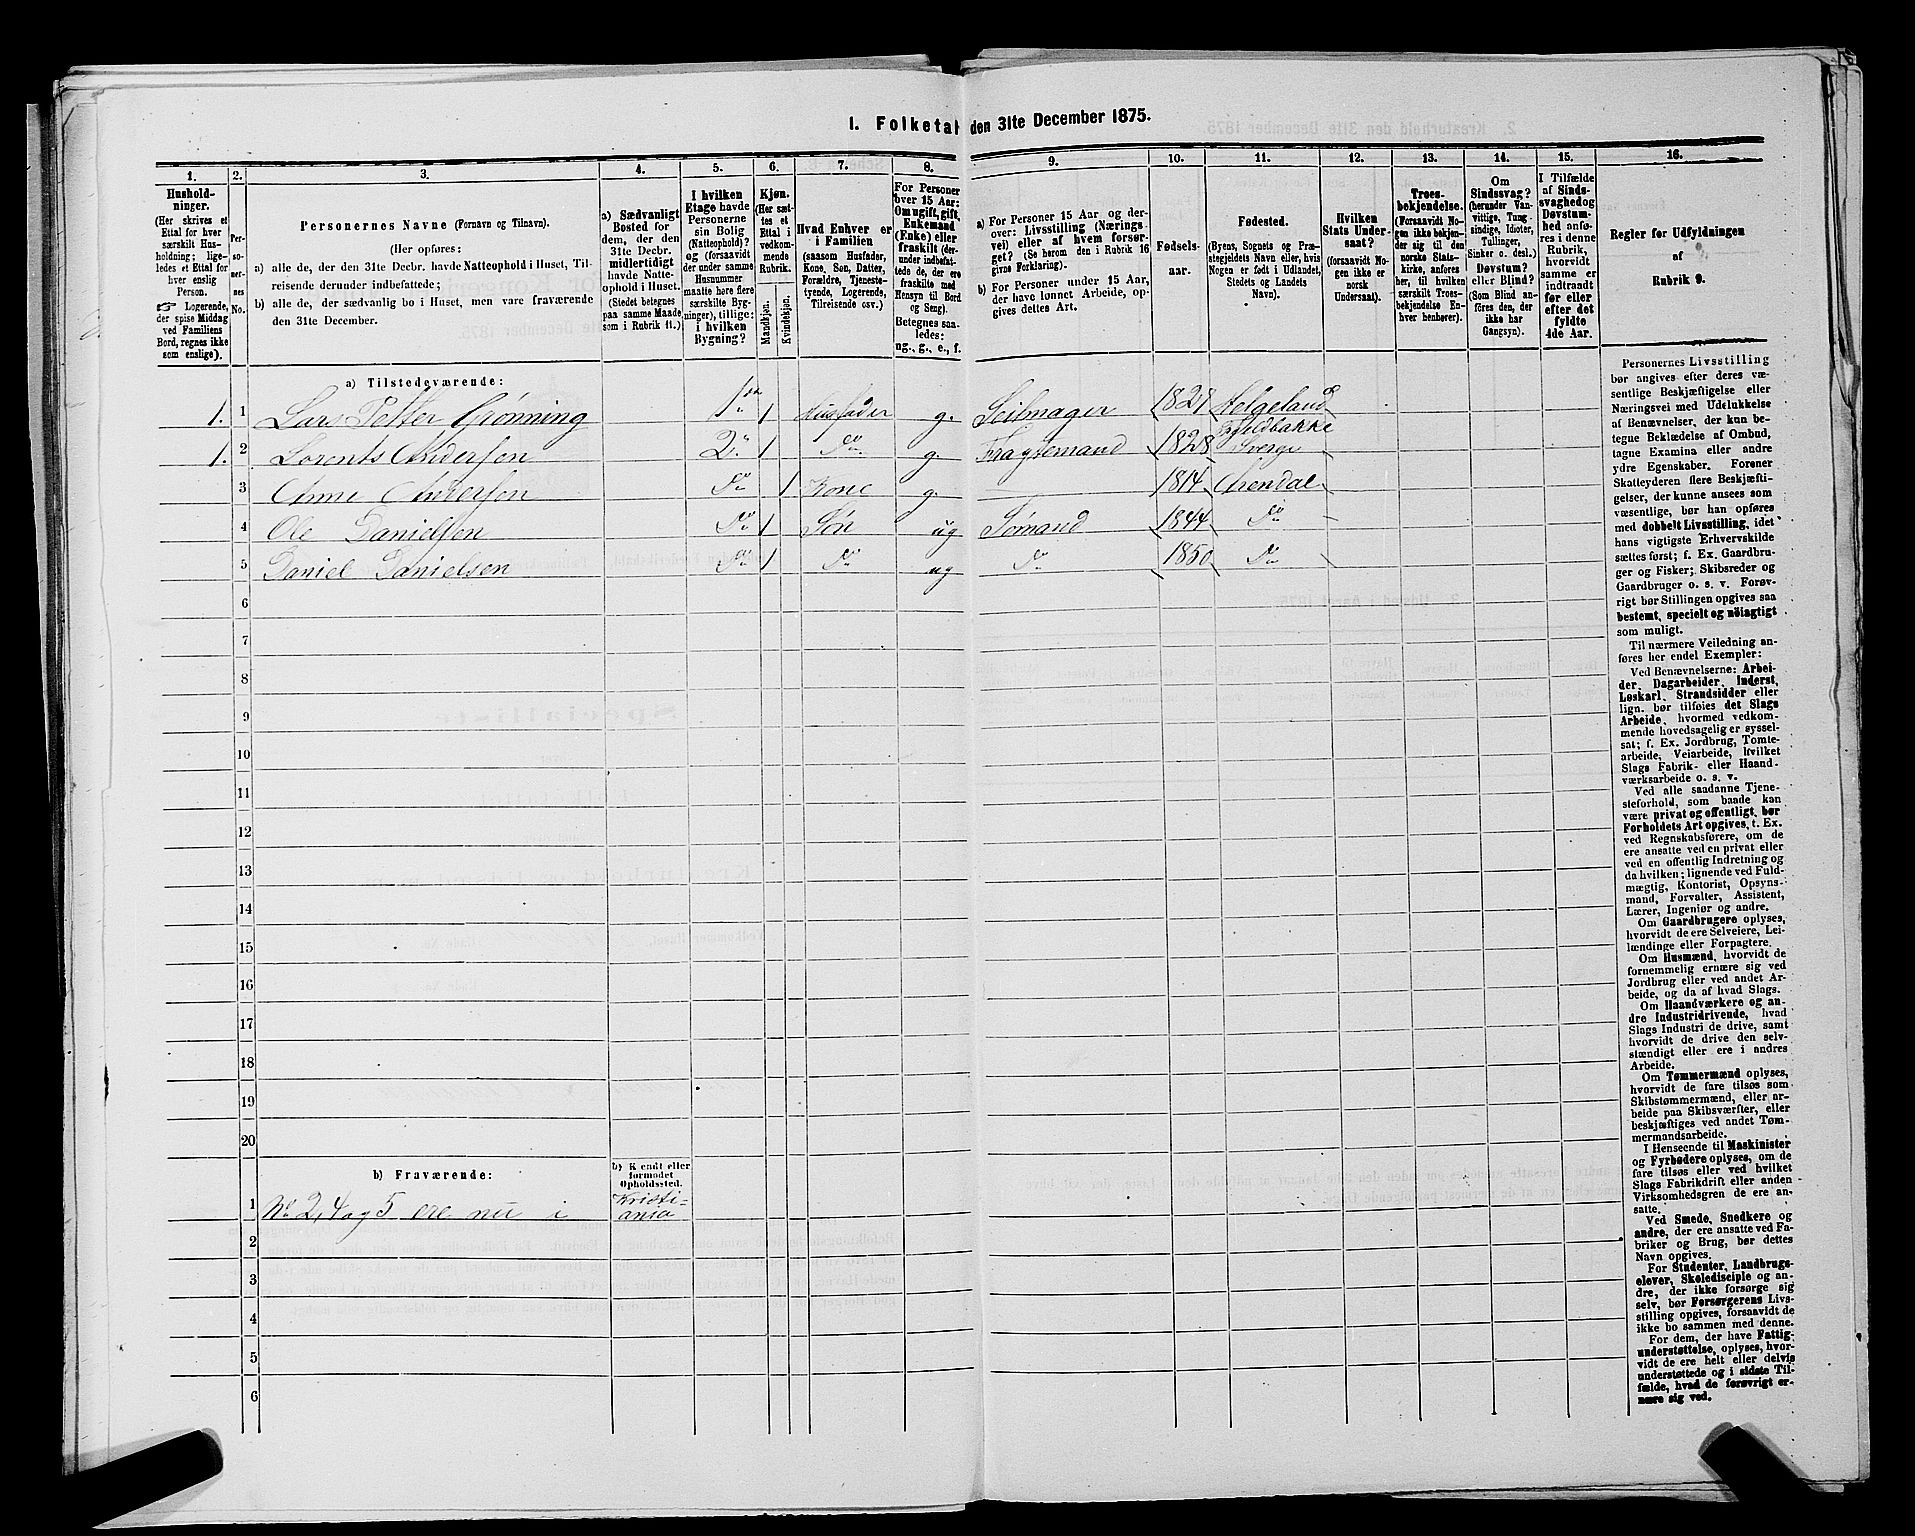 1. Folketal den 31te December 1875.
1. 2. 3. 4. 5. 6. 7. 8. 9. 10. 11. 12. 13. 14. 15. 16.
Hushold-
ninger.
(Her skrives et
Ettal for hver
særskilt Hus-
holdning; lige-
ledes et Ettal for
hver enslig
Person.
☞ Logerende,
der spise Middag
ved Familiens
Bord, regnes ikke
som enslige).
Per-
so-
ner-
nes
No.
Personernes Navne (Fornavn og Tilnavn).
(Her opføres:
a) alle de, der den 31te Decbr. havde Natteophold i Huset, Til-
reisende derunder indbefattede;
b) alle de, der sædvanlig bo i Huset, men vare fraværende
den 31te December.
a) Sædvanligt
Bosted for
dem, der den
31te Decbr.
midlertidigt
havde Natte-
ophold i Huset.
(Stedet betegnes
paa samme Maade
som i Rubrik 11.)
I hvilken
Etage havde
Personerne
sin Bolig
(Natteophold)?
og (forsaavidt
der under samme
Husnummer
maatte høre flere
særskilte Byg-
ninger), tillige:
i hvilken
Bygning?
Kjøn.
(Her sæt-
tes et
Ettal i
vedkom-
mende
Rubrik.
Mandkjøn.
Kvindekjøn.
Hvad Enhver er
i Familien
(saasom Husfader,
Kone, Søn, Datter,
Forældre, Tjeneste-
tyende, Logerende,
Tilreisende osv.)
For Personer
over 15 Aar:
Om ugift, gift,
Enkemand
(Enke) eller
fraskilt (der-
under indbefat-
tede de, der ere
fraskilte med
Hensyn til Bord
og Seng).
Betegnes saa-
ledes:
ug., g., e., f.
a) For Personer 15 Aar og der-
over: Livsstilling (Nærings
vei) eller af hvem forsør-
get (Se herom den i Rubrik 16
givne Forklaring).
b) For Personer under 15 Aar,
der have lønnet Arbeide, op-
gives dettes Art.
Fødsels-
aar.
Fødested.
(Byens, Sognets og Præ-
stegjeldets Navn eller, hvis
Nogen er født i Udlandet,
Stedets og Landets
Navn).
Hvilken
Stats Under-
saat?
(forsaavidt No-
gen ikke er
norsk
Undersaat).
Troes-
bekjendelse.
(Forsaavidt No-
gen ikke bekjen-
der sig til den
norske Stats-
kirke, anføres
her, til hvilken
særskilt Troes-
bekjendelse En-
hver henhører).
Om
Sindssvag?
(herunder Van-
vittige, Tung-
sindige, Idioter,
Tullinger,
Sinker o. desl.)
Døvstum?
eller Blind?
(Som Blind an-
føres den, der
ikke har
Gangsyn).
I Tilfælde
af Sinds-
svaghed og
Døvstum-
hed anfø-
res i denne
Rubrik,
hvorvidt
samme er
indtraadt
før eller
efter det
fyldte
4de Aar.
Regler for Udfyldningen
af
Rubrik 9.
a) Tilstedeværende:
1. 1 Lars Petter Grønning 1ste 1 Husfader g. Seilmager 1827 Helgeland
1. 2 Lorents Andersen 2. 1 Do g. Fragtemand 1828 Sverge
3 Anne Andersen Do 1 Kone g. 1814 Arendal
4 Ole Danielsen Do 1 Søn ug Sømand 1844 Do
5 Daniel Danielsen Do 1 Do ug Do 1850 Do
6
7
8
9
10
11
12
13
14
15
16
17
18
19
20
b) Fraværende:
b) Kendt eller
formodet
Opholdssted.
1 No 2, 4 og 5 ere nu i Kristi-
ania
2
3
4
5
6
Personernes Livsstilling
bør angives efter deres væ-
sentlige Beskjæftigelse eller
Næringsvei med Udelukkelse
af Benævnelser, der kun be-
tegne Beklædelse af Ombud,
tagne Examina eller andre
ydre Egenskaber. Forener
Skatteyderen flere Beskjæfti-
gelser, der kunne ansees som
væsentlige, bør han opføres
med dobbelt Livsstilling, idet
hans vigtigste Erhvervskilde
sættes først; f. Ex. Gaardbru-
ger og Fisker; Skibsreder og
Gaardbruger o. s. v. Forøv-
rigt bør Stillingen opgives saa
bestemt, specielt og nöiagtigt
som muligt.
Til nærmere Veiledning an-
føres her endel Exempler:
Ved Benævnelserne: Arbei-
der, Dagarbeider, Inderst,
Løskarl, Strandsidder eller
lign. bør tilføies det Slags
Arbeide, hvormed vedkom-
mende hovedsagelig er syssel-
sat; f. Ex. Jordbrug, Tomte-
arbeide, Veiarbeide, hvilket
Slags Fabrik- eller Haand-
værksarbeide o. s. v.
Ved alle saadanne Tjene-
steforhold, som baade kan
være privat og offentligt, bør
Forholdets Art opgives, t. Ex.
ved Regnskabsførere, om de
ere ansatte ved en privat eller
ved en offentlig Indretning og
da hvilken; lignende ved Fuld-
mægtig, Kontorist, Opsyns-
mand, Forvalter, Assistent,
Lærer, Ingeniør og andre.
Om Gaardbrugere oplyses,
hvorvidt de ere Selveiere, Lei-
lændinge eller Forpagtere.
Om Husmænd, hvorvidt de
fornemmelig ernære sig ved
Jordbrug eller ved andet Ar-
beide, og da af hvad Slags.
Om Haandværkere og an-
dre Industridrivende, hvad
Slags Industri de drive, samt
hvorvidt de drive den selv-
stændigt eller ere i andres
Arbeide.
Om Tømmermænd oplyses,
hvorvidt de fare tilsøs som
Skibstømmermænd, eller ar-
beide paa Skibsværfter, eller
beskjæftiges ved andet Tøm-
mermandsarbeide.
I Henseende til Maskinister
og Fyrbødere oplyses, om de
fare tilsøs eller ved hvilket
Slags Fabrikdrift eller anden
Virksomhedsgren de ere an-
satte.
Ved Smede, Snedkere og
andre, der ere ansatte ved Fa-
briker og Brug, bør dettes
Navn opgives.
For Studenter, Landbrugs-
elever, Skoledisciple og an-
dre, der ikke forsørge sig
selv, bør Forsørgerens Livs-
stilling opgives, forsaavidt de
ikke bo sammen med denne.
For dem, der have Fattig-
understøttelse, oplyses, hvor-
vidt de ere helt eller delvis
understøttede og i sidste Til-
fælde, hvad de forøvrigt er-
nære sig ved.